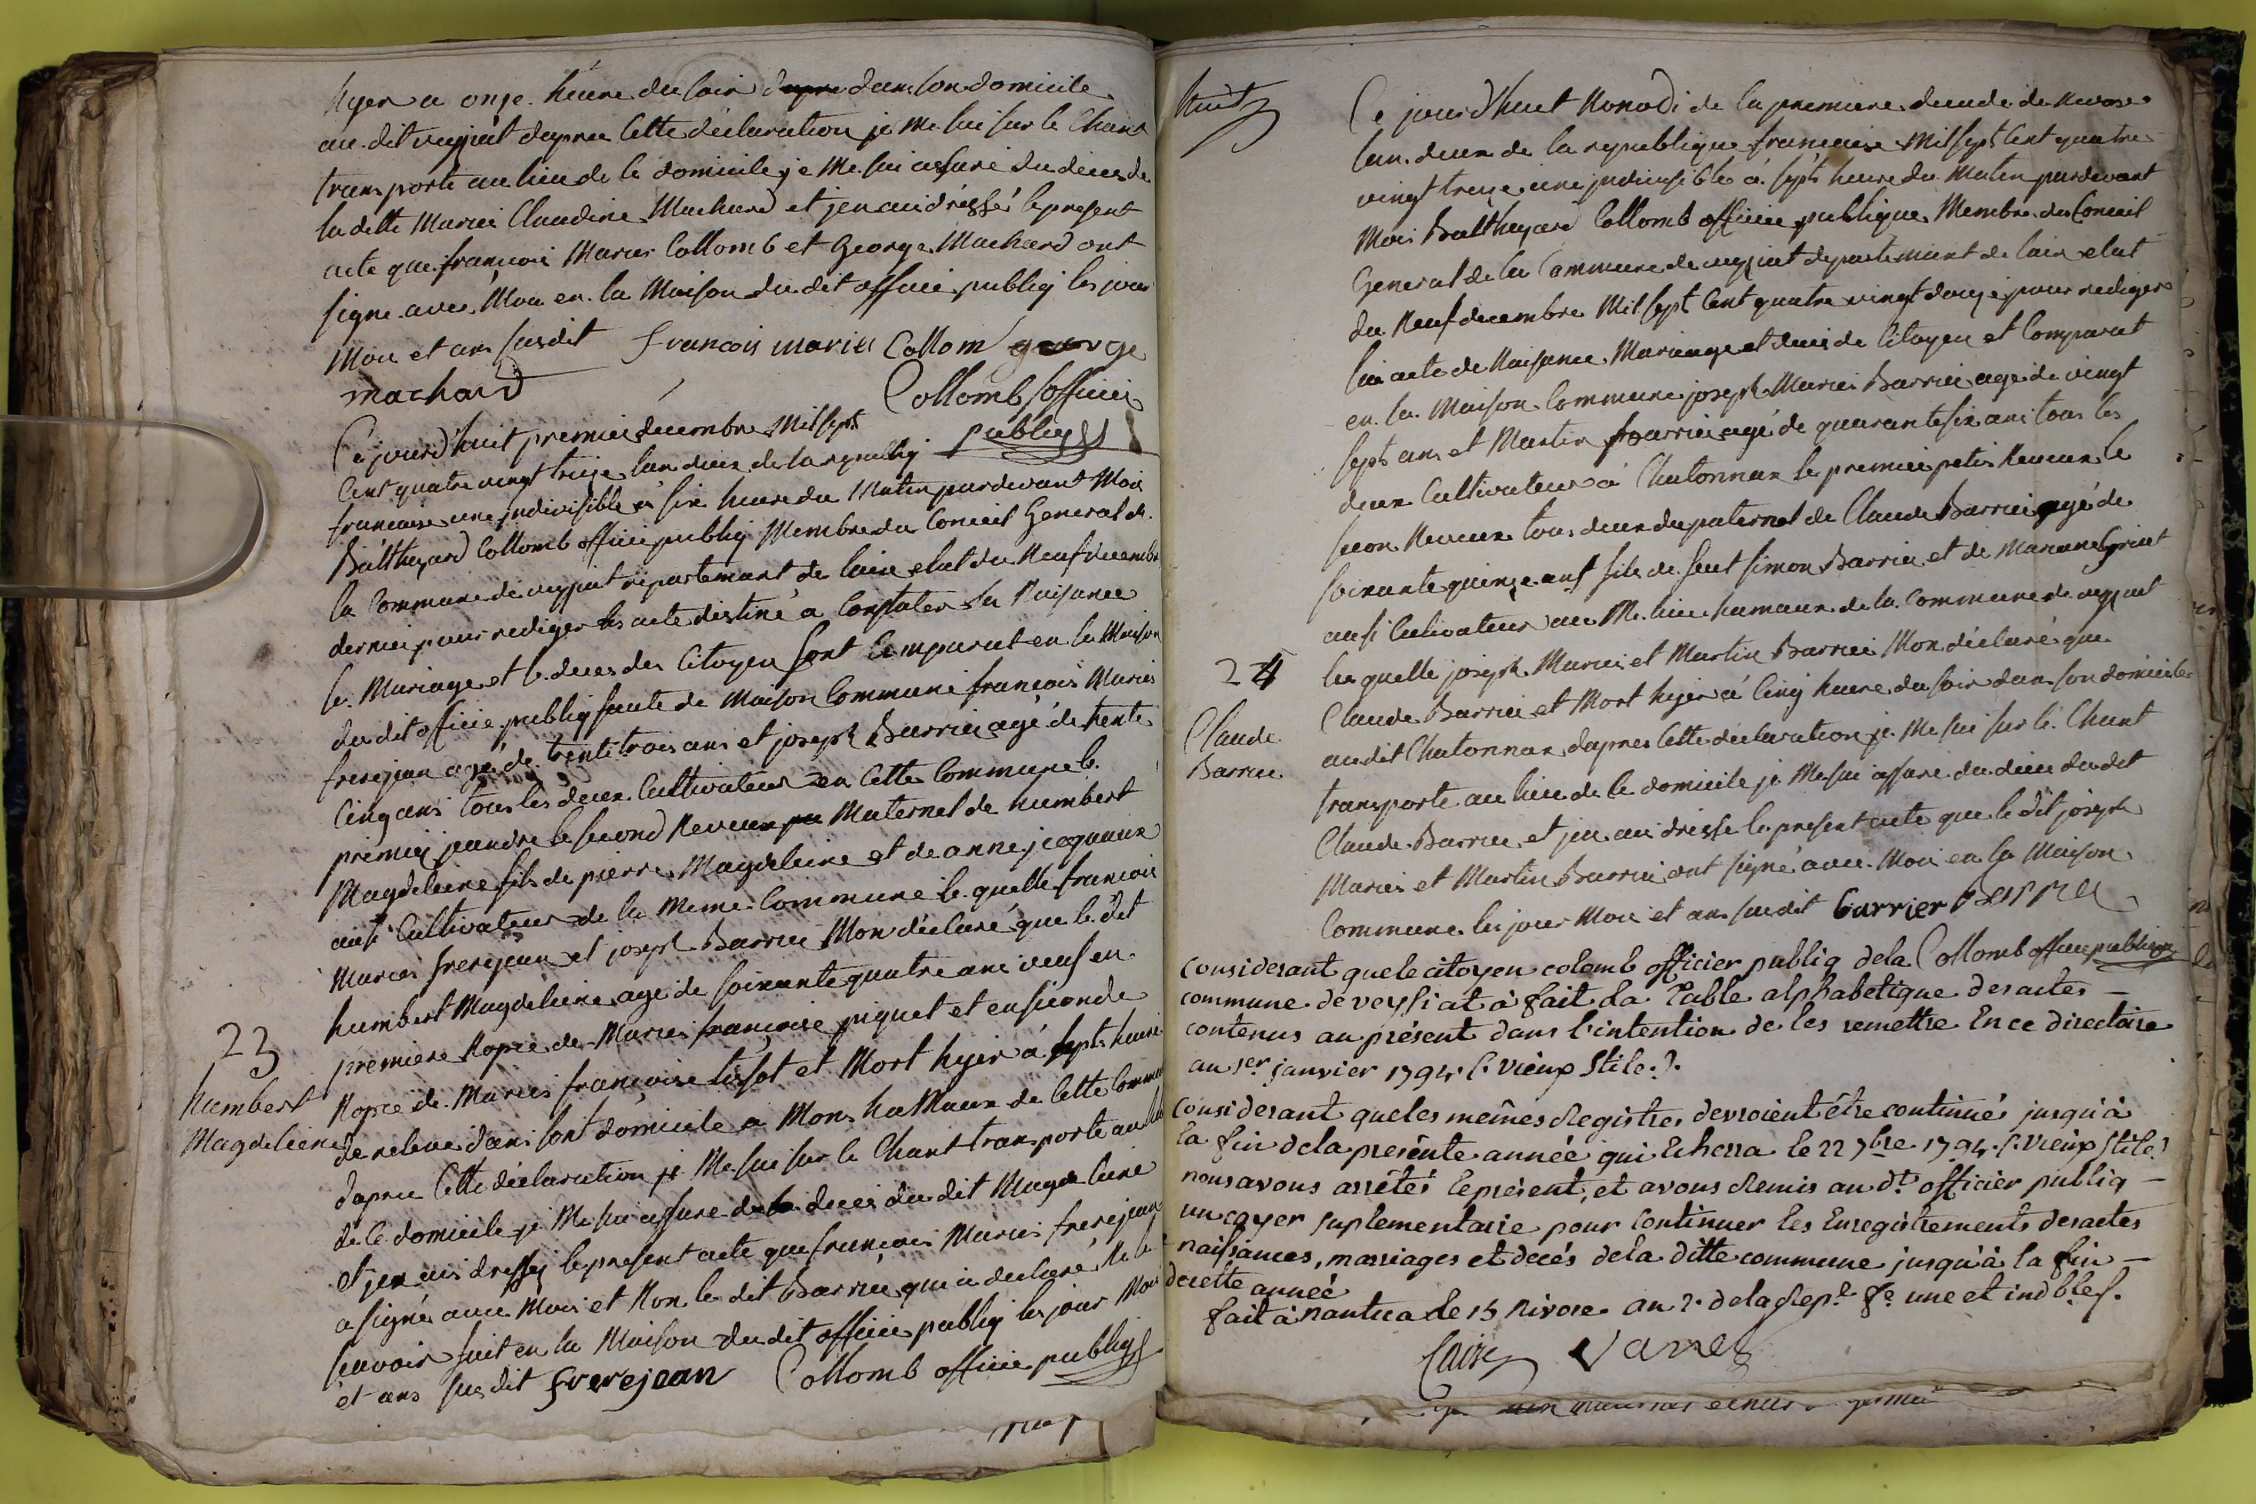 hyer a onze heure du soir dans son domicile
au dit veyziat dapres cette déclaration je me sui sur le Chant
transporte au lieu de le domicile je me sui assuré du deces de
la ditte Marie Claudine Machard et jen ai dréssé le present
acte que françois Marie Collomb et George Machard ont
signe avec Moi en la Maison du dit officie publiq les jour
Moi et ans susdit francois marie Collom george
machard
Collomb officie
publiq
Ce jourd'huit premier decembre Mil sept
Cent quatre vingt treize lan deux de la republiq
francaise une jndivisible a six heure du Matin pardevant Moi
Balthazard Collomb officie publiq Membre du Conceil General de
la Commune de veyziat departemant de lain elut du Neuf decembre
dernier pour rediger les acte destiné a Constater la Naisance
le Mariage et le deces des Citoyen sont Comparut en la Maison
du dit officie publiq faute de Maison Commune françois Marie
frerejean agé de trente trois ans et joseph Barrie agé de trente
Cinq ans tous les deux Cultivateur en Cette Commune le
premier jeandre le second Neveux Maternel de humbert
Magdeleine fils de pierre Magdeleine et de anne jcoquaux
ausi Cultivateur de la Meme Commune le quelle francois
Marie frerejean et joseph Barrie Mon déclaré que le dit
humbert Magdeleine age de soixante quatre ans veuf en
premiere Nopce de Marie françoise piquet et en seconde
23
humbert
Magdeleine
Nopce de Marie françoise tissot et Mort hyer á sept heure
de releve dans sont domicile a Mons hameaux de Cette Commune
dapres Cette déclaration je Me sui sur le Chant transporte au lieu
de le domicile je Me sui assure du deces du dit Magdeleine
et jen ai dressé le present acte que francois Marie frerejean
a signé avec Moi et Non le dit Barrie qui a declaré Ne le
scavoir fait en la Maison du dit officie publiq les jour Moi
et ans susdit frerejean Collomb officie publiq
Ce jourd'huit Nonodi de la premiere decade de Nivose
lan deux de la republique francaise Mil sept Cent quatre
vingt treize une jndivisible á sept heure du Matin pardevant
Moi Balthazard Collomb officie publique Membre du Conceil
General de la Commune de veyziat departemant de lain elut
du Neuf decembre Mil sept Cent quatre vingt douze pour rediger
les acte de Naisance Mariage et deces de Citoyen et Comparut
en la Maison Commune joseph Marie Barrie age de vingt
sept ans et Martin Barrie agé de quarante six ans tous les
deux Cultivateur á Chatonnax le premier petis Neveux le
secon Neveux tous deux du paternel de Claude Barrie agé de
soixante quinze ans fils de feut simon Barrie et de Marianne
ausi Cultivateur au Me lieu hamaux de la Commune de veyziat
24
Claude
Barrie
les quelle joseph Marie et Martin Barrie Mon déclaré que
Claude Barrie et Mort hyer á Cinq heure du soir dans son domicile
au dit Chatonnax dapres Cette déclaration je Me sui sur le Chant
transporte au lieu de le domicile je Me sui assure du deces du dit
Claude Barrie et jen ai dresse le present acte que le dit joseph
Marie et Martin Barrie ont signé avec Moi en la Maison
Commune les jour Moi et ans susdit barrier
Collomb officie publique
Considerant que le citoyen colomb officier publiq de la
commune de veyssiat à fait la Table alphabetique des actes
contenus au présent dans l'intention de les remettre En ce directoire
au 1er janvier 1794. (vieux stile).
Considerant que les mêmes Registres devroient être continués jusqu'à
la fin de la presente année qui Echerra le 22 7bre 1794. (vieux stile)
nous avons arrêtés le présent, et avons Remis au dt officier publiq
un cayer suplementaire pour Continuer les Enregistrements des actes
naissances, mariages et decés de la ditte commune jusqu'à la fin
de cette année
fait à nantua le 15 Nivose an 2e de la Repe fe une et indble